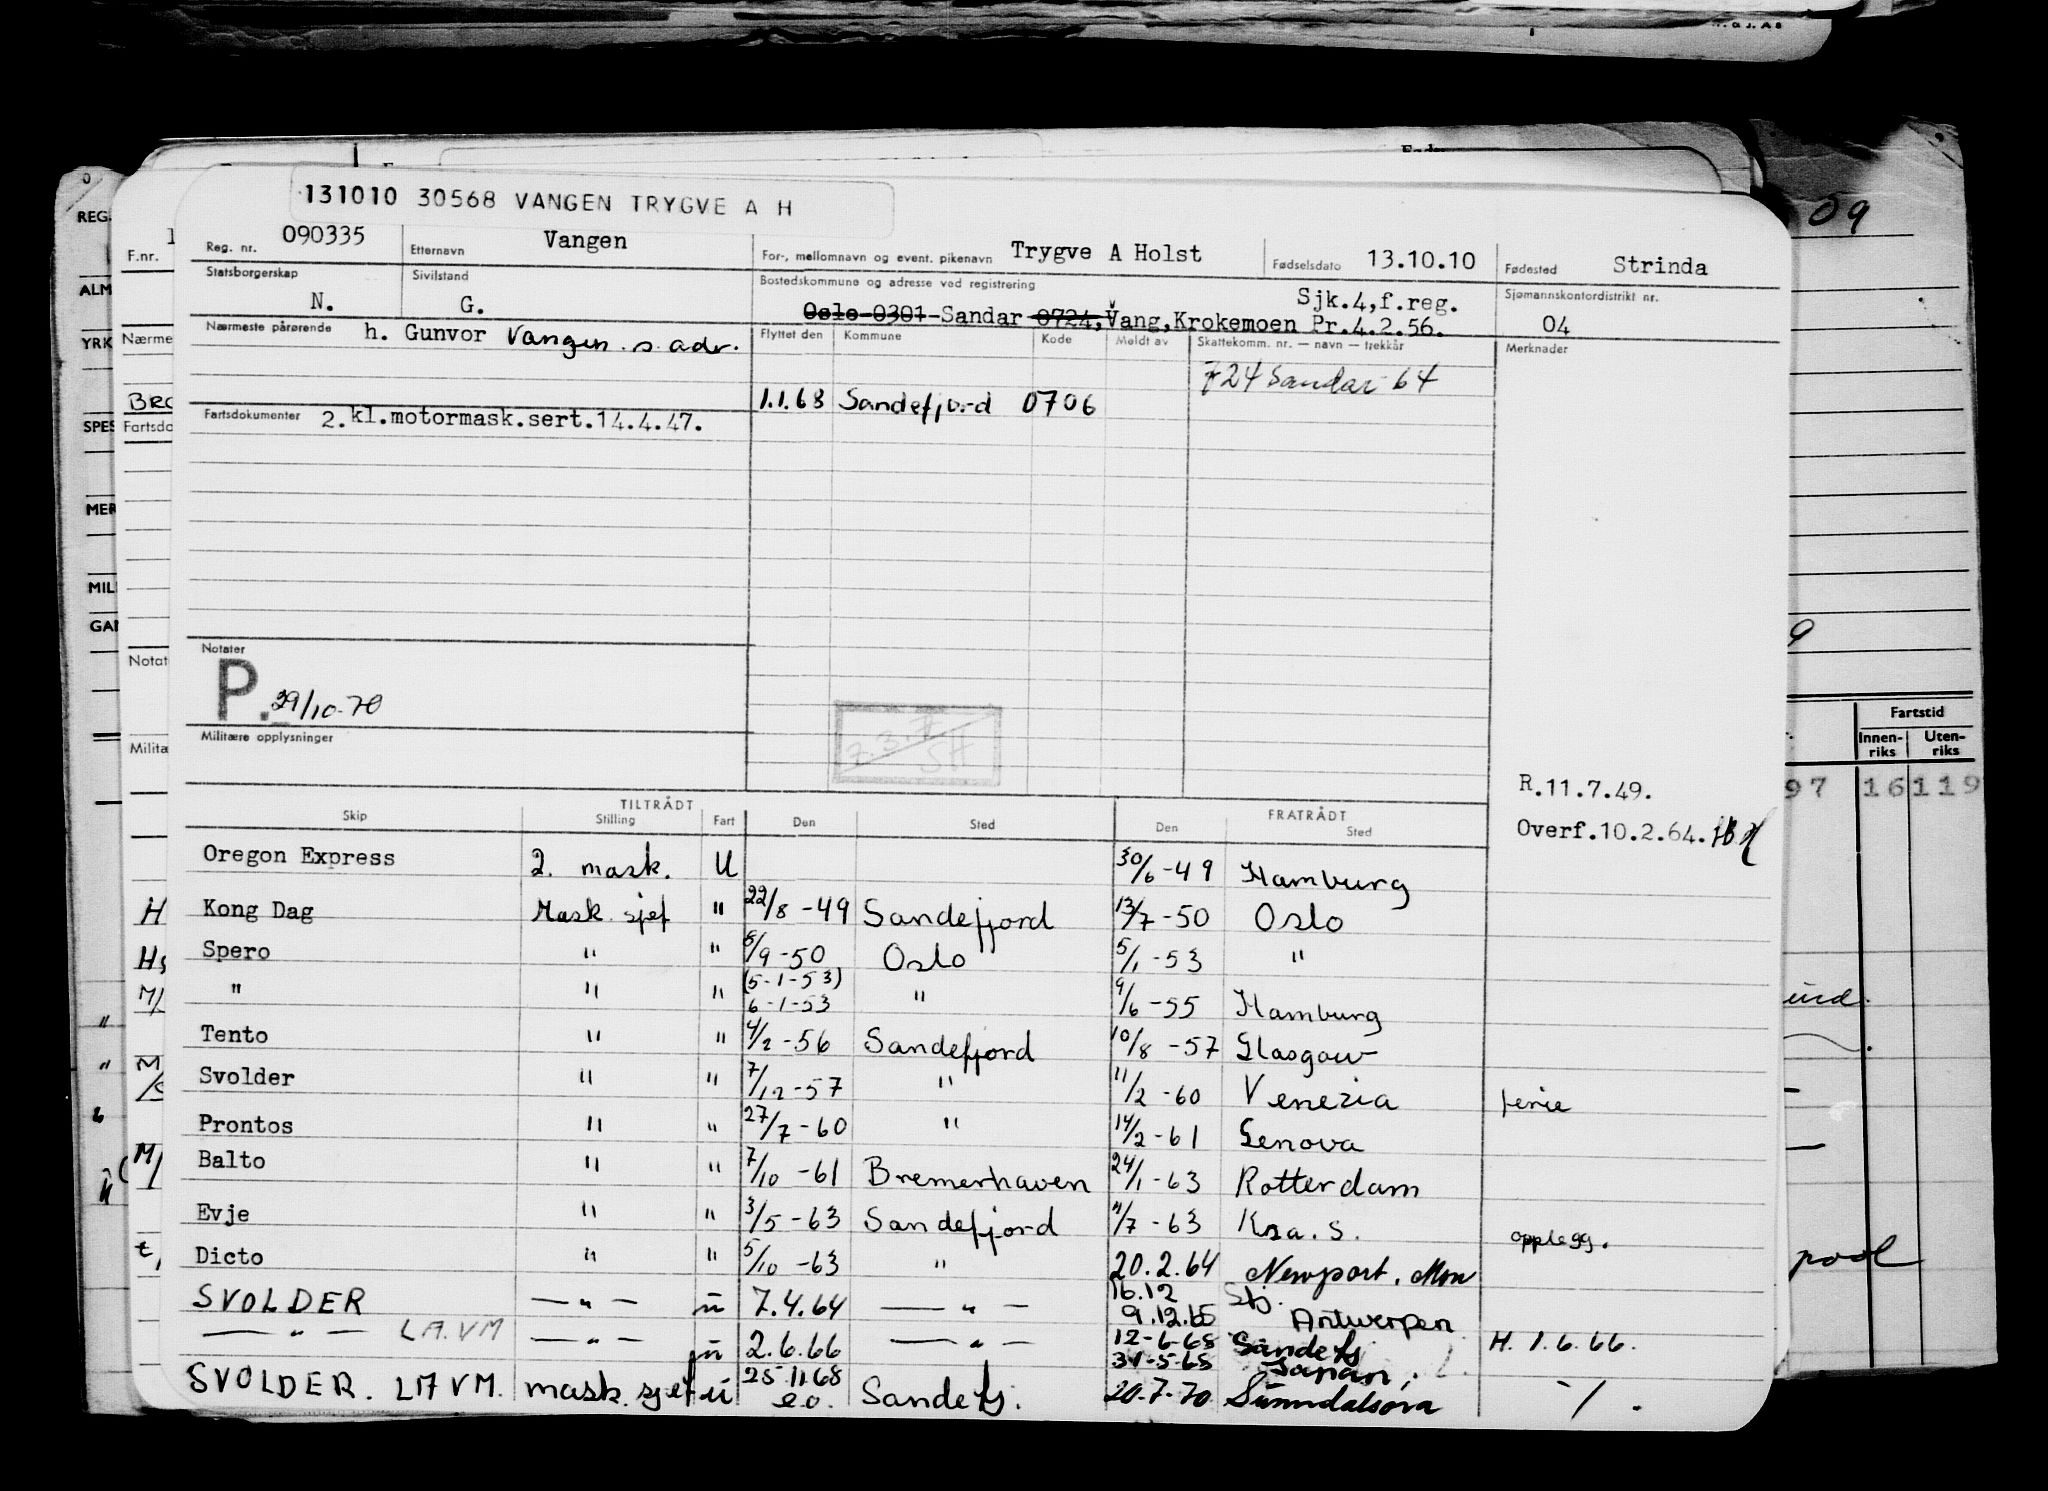 131010 30568 VANGEN TRYGVE A H
Reg. nr. 090335 Etternavn Vangen For-, mellomnavn og event. pikenavn Trygve A Holst Fødselsdato 13.10.10 Fødested Strinda
Statsborgerskap N. Sivilstand G. Bostedskommune og adresse ved registrering Sjk.4,f.reg. Sjømannskontordistrikt nr. 04
Oslo 0301 Sandar 0724, Vang,Krokemoen Pr.4.2.56.
Nærmeste pårørende h. Gunvor Vangen s. adr. Flyttet den Kommune Kode Meldt av Skattekomm. nr. — navn — trekkår Merknader
724 Sandar 64
1.1.68 Sandefjord 0706
Fartsdokumenter 2.kl.motormask.sert.14.4.47.
Notater
P. 29/10-70
Militære opplysninger
R.11.7.49.
Overf.10.2.64.
TILTRÅDT FRATRÅDT
Skip Stilling Fart Den Sted Den Sted
Oregon Express 2. mask. U 30/6-49 Hamburg
Kong Dag Mask sjef " 22/8-49 Sandefjord 13/7-50 Oslo
Spero " " 8/9-50 Oslo 5/1-53 "
" " " (5-1-53) 6-1-53 " 9/6-55 Hamburg
Tento " " 4/2-56 Sandefjord 10/8-57 Glasgow
Svolder " " 7/12-57 " 11/2-60 Venezia ferie
Prontos " " 27/7-60 " 14/2-61 Genova
Balto " " 7/10-61 Bremerhaven 24/1-63 Rotterdam
Evje " " 3/5-63 Sandefjord 11/7-63 Kra. S. opplegg.
Dicto " " 5/10-63 " 20.2.64 Newport, Mon
SVOLDER — " — u 7.4.64 — " — 16.12 9.12.65 Antwerpen
— " — LAVM — " — u 2.6.66 — " — 12-6-68 Sandefj H. 1.6.66.
31-5-68 Japan,
SVOLDER. LAVM. mask. sjef u 25.11.68 e.o. Sandefj. 20.7.70 Sunndalsøra
F.nr.
Fartstid
Innen-riks Uten-riks
97 16 119
09